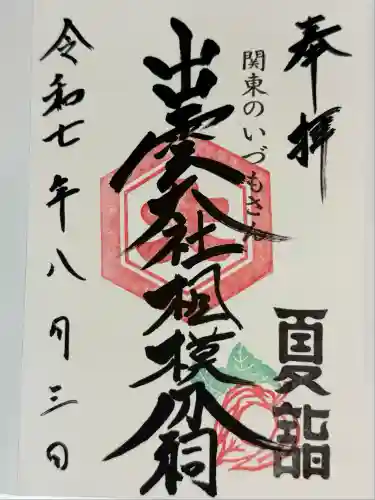 奉拝
関東のいづもさん
出雲大社相模分祠
夏詣
令和七年八月三日